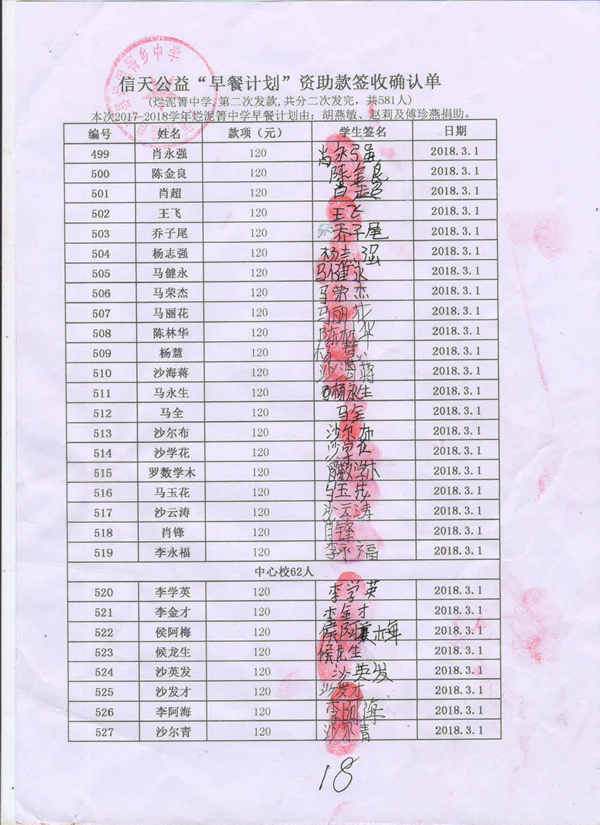 信天公益“早餐计划”资助款签收确认单
(烂泥箐中学,第二次发款,共分二次发完，共581人)
本次2017-2018学年烂泥箐中学早餐计划由：胡燕敏、赵莉及傅珍燕捐助。
编号 姓名 款项（元） 学生签名 日期
499 肖永强 120 肖永强 2018.3.1
500 陈金良 120 陈金良 2018.3.1
501 肖超 120 2018.3.1
502 王飞 120 王飞 2018.3.1
503 乔子尾 120 乔子尾 2018.3.1
504 杨志强 120 杨志强 2018.3.1
505 马健永 120 马健永 2018.3.1
506 马荣杰 120 马荣杰 2018.3.1
507 马丽花 120 马丽花 2018.3.1
508 陈林华 120 陈林华 2018.3.1
509 杨慧 120 杨慧 2018.3.1
510 沙海蒋 120 沙海蒋 2018.3.1
511 马永生 120 2018.3.1
512 马全 120 马全 2018.3.1
513 沙尔布 120 沙尔布 2018.3.1
514 沙学花 120 沙学花 2018.3.1
515 罗数学木 120 2018.3.1
516 马玉花 120 马玉花 2018.3.1
517 沙云涛 120 沙云涛 2018.3.1
518 肖锋 120 肖锋 2018.3.1
519 李永福 120 李永福 2018.3.1
中心校62人
520 李学英 120 李学英 2018.3.1
521 李金才 120 李金才 2018.3.1
522 侯阿梅 120 侯阿梅 2018.3.1
523 候龙生 120 候龙生 2018.3.1
524 沙英发 120 沙英发 2018.3.1
525 沙发才 120 沙发才 2018.3.1
526 李阿海 120 李阿海 2018.3.1
527 沙尔青 120 沙尔青 2018.3.1
18